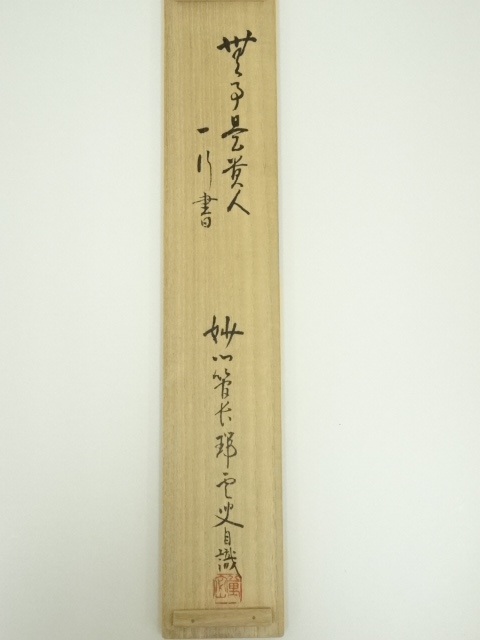 無事是貴人
一行書
妙心管長瑞雲叟自識